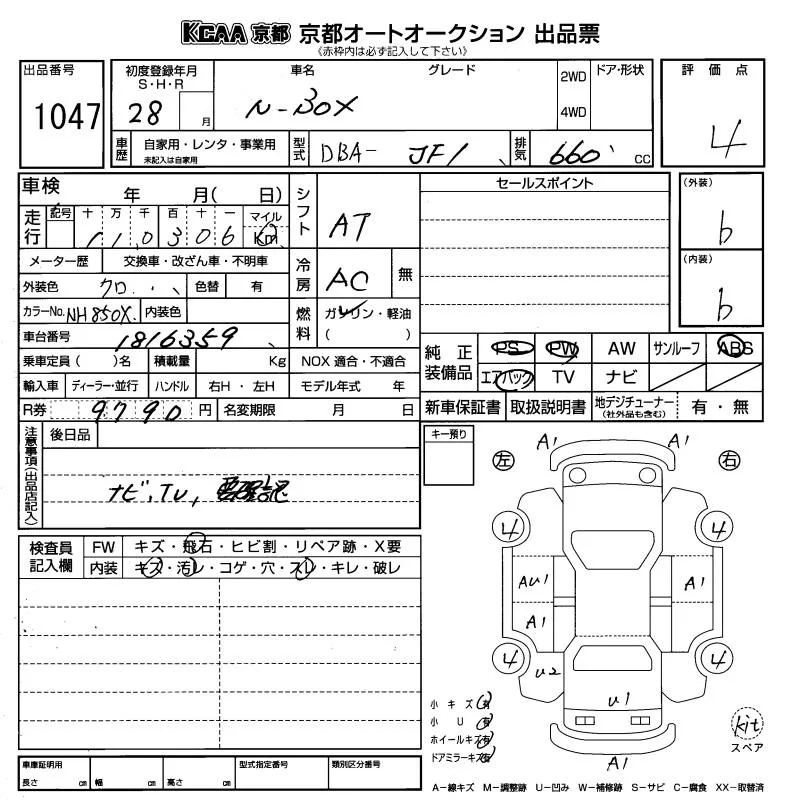 KCAA 京都 京都オートオークション 出品票
《赤枠内は必ず記入して下さい》
出品番号
1047
初度登録年月
S・H・R
28 月
車名
N-BOX
グレード
2WD
4WD
ドア・形状
評価点
4
車歴
自家用・レンタ・事業用
未記入は自家用
型式
DBA- JF1
排気
660 cc
車検 年 月( 日)
走行
記号 十 万 千 百 十 一 マイル
110306 Km
メーター歴 交換車・改ざん車・不明車
外装色 クロ 色替 有
カラーNo. NH850X 内装色
車台番号 1816359
乗車定員 ( )名 積載量 Kg NOX 適合・不適合
輸入車 ディーラー・並行 ハンドル 右H・左H モデル年式 年
R券 9790 円 名変期限 月 日
シフト AT
冷房 AC 無
燃料 ガソリン・軽油
( )
セールスポイント
(外装)
b
(内装)
b
純正装備品
PS PW AW サンルーフ ABS
エアバック TV ナビ
新車保証書 取扱説明書 地デジチューナー 有・無
(社外品も含む)
注意事項(出品店記入)
後日品
ナビ、TV、要確認
検査員記入欄
FW キズ・飛石・ヒビ割・リペア跡・X要
内装 キズ・汚レ・コゲ・穴・スレ・キレ・破レ
キー預り
左
右
A1
A1
4
4
AU1
A1
A1
4
4
U2
U1
A1
小キズ 有
小U 有
ホイールキズ 有
ドアミラーキズ 有
kit
スペア
車庫証明用
長さ cm 幅 cm 高さ cm
型式指定番号
類別区分番号
A-線キズ M-調整跡 U-凹み W-補修跡 S-サビ C-腐食 XX-取替済